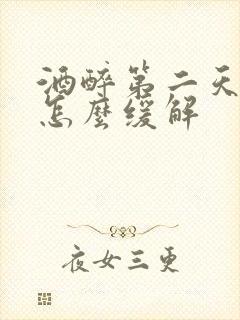 酒醉第二天
怎麼缓解
夜女三更